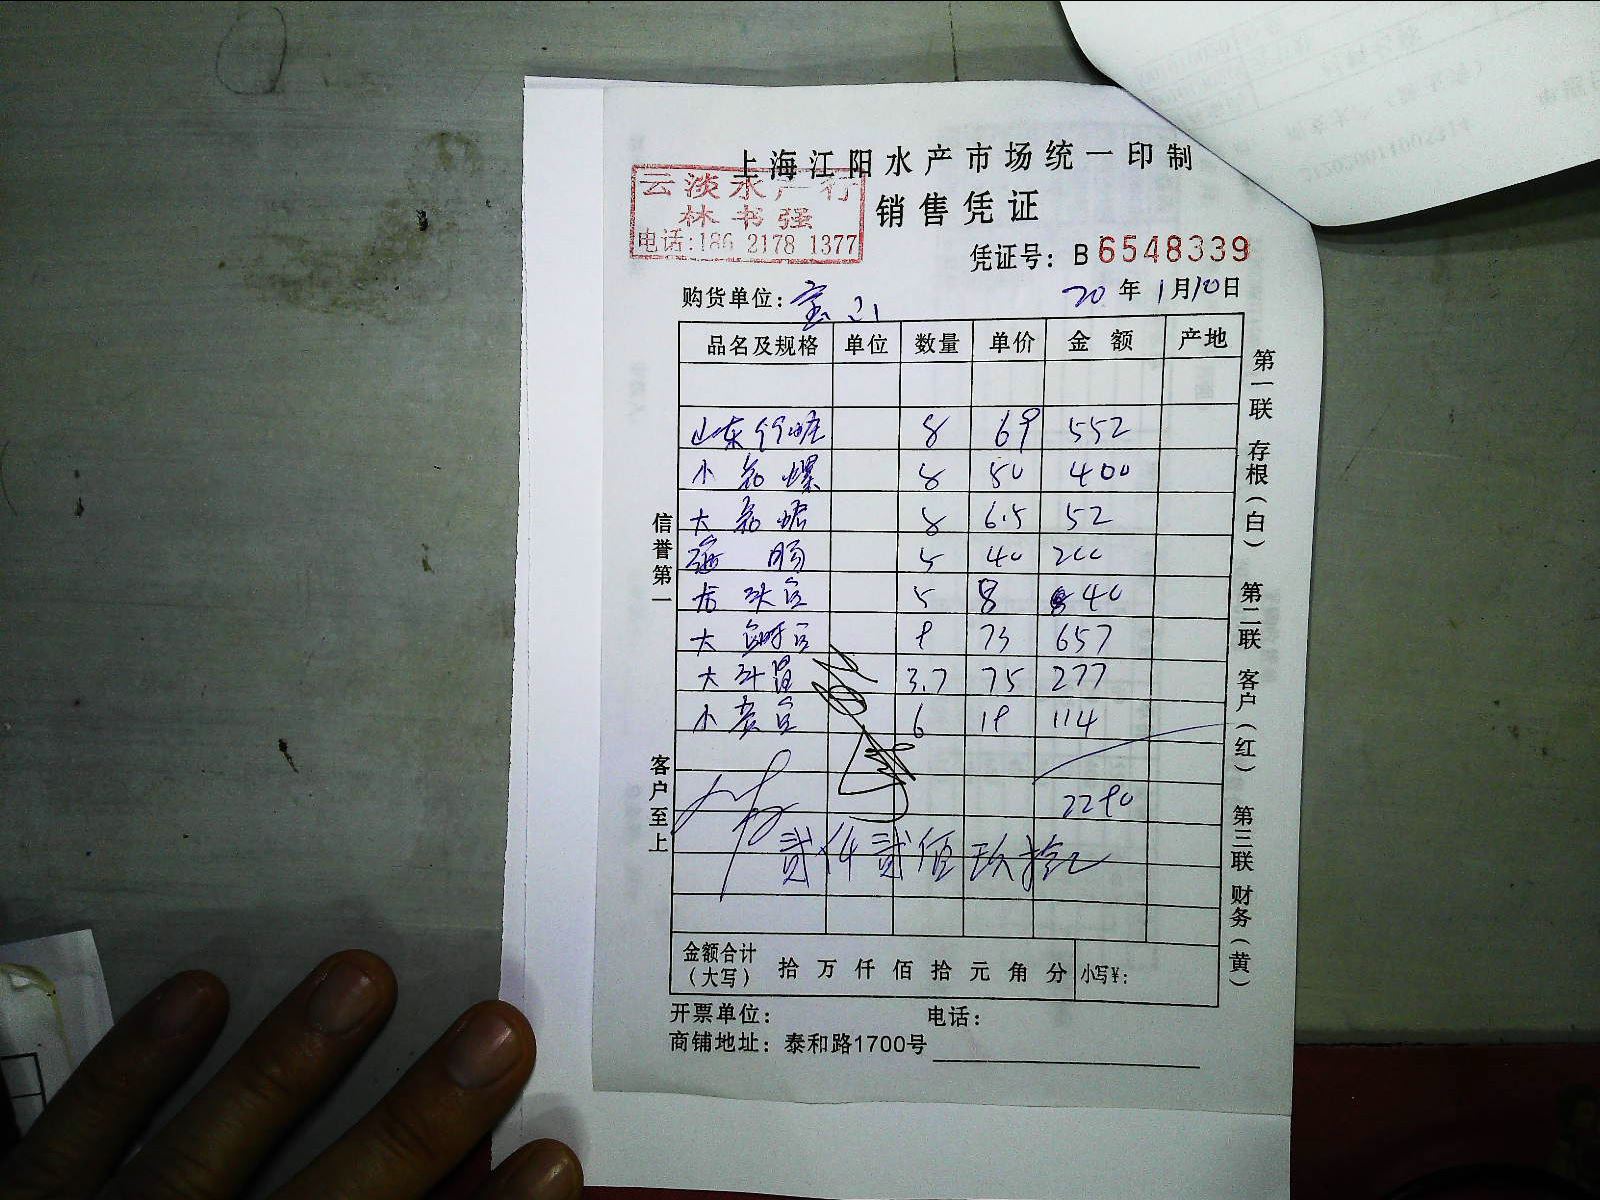 上海江阳水产市场统一印制
云淡水产行
林书强
电话:186 2178 1377
销售凭证
凭证号: B 6548339
购货单位: 宝山
20年1月10日
品名及规格 单位 数量 单价 金额 产地
山东 8 69 552
小 螺 8 50 400
大 8 6.5 52
海肠 5 40 200
5 8 40
大 9 73 657
大 3.7 75 277
小 6 19 114
2290
贰仟贰佰玖拾
金额合计(大写) 拾 万 仟 佰 拾 元 角 分 小写¥:
开票单位: 电话:
商铺地址: 泰和路1700号
信誉第一
客户至上
第一联 存根(白) 第二联 客户(红) 第三联 财务(黄)